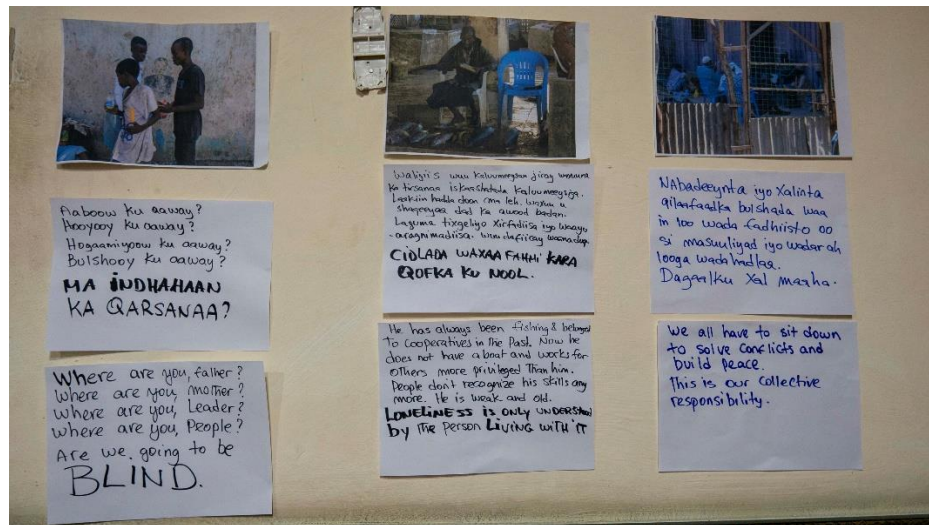 Aaboow ku aaway?
Hooyooy ku aaway?
Hogaamiyoow ku aaway?
Bulshooy ku aaway?
MA INDHAHAAN
KA QARSANAA?
Where are you, father?
Where are you, mother?
Where are you, Leader?
Where are you, People?
Are we going to be
BLIND.
Waligiis wuu kaluumeysan jiray
ka tirsanaa iskaashatada kaluumeysiga.
Laakiin hadda doon ma leh, wuxuu u
shaqeeyaa dad ka awood badan.
Laguma tixgeliyo xirfadiisa iyo waayo
CIDLADA WAXAA FAHMI KARA
QOFKA KU NOOL.
He has always been fishing & belonged
to cooperatives in the Past. Now he
does not have a boat and works for
others more privileged Than him.
People don't recognize his skills any
more. He is weak and old.
LONELINESS is only UNDERSTOOD
by The person LIVING WITH IT
NAbadeeynta iyo Xalinta
qilaafaadka bulshada waa
in loo wada fadhiisto oo
si masuuliyad iyo wadar ah
looga wada hadlaa.
Dagaalku xal maaha.
We all have to sit down
to solve conflicts and
build peace.
This is our collective
responsibility.